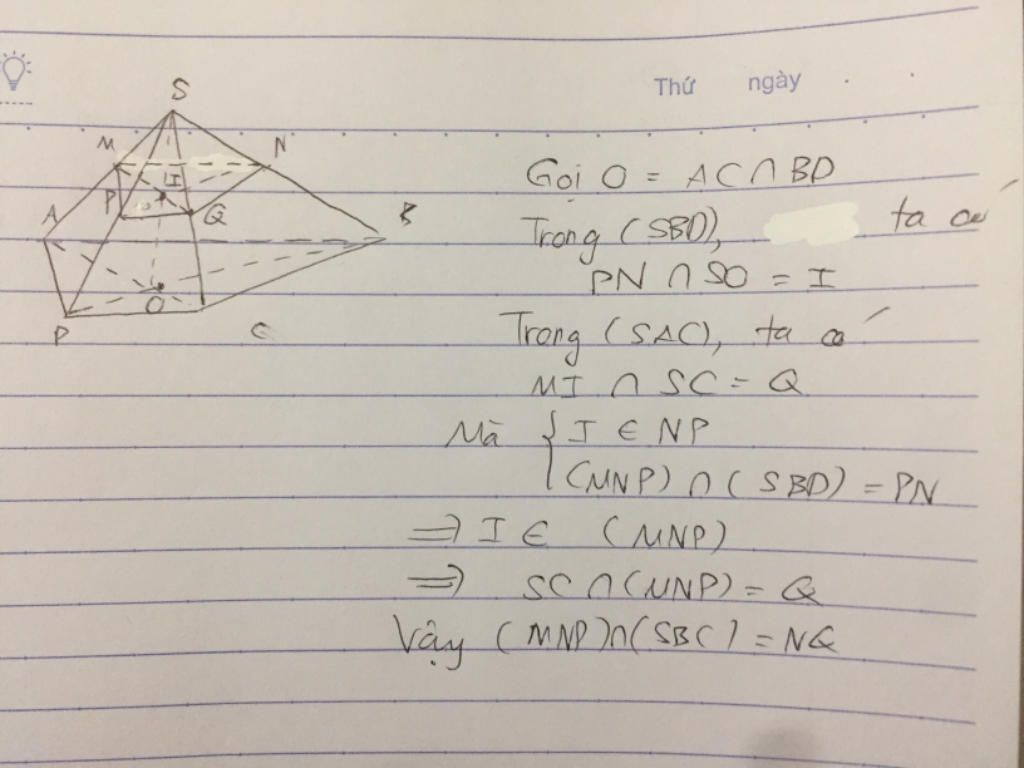 Thứ ngày
S
M
N
I
P
Q
A
B
O
P
C
Gọi O = AC ∩ BD
Trong (SBD), ta có
PN ∩ SO = I
Trong (SAC), ta có
MI ∩ SC = Q
Mà { I ∈ NP
(MNP) ∩ (SBD) = PN
=> I ∈ (MNP)
=> SC ∩ (MNP) = Q
Vậy (MNP) ∩ (SBC) = NQ